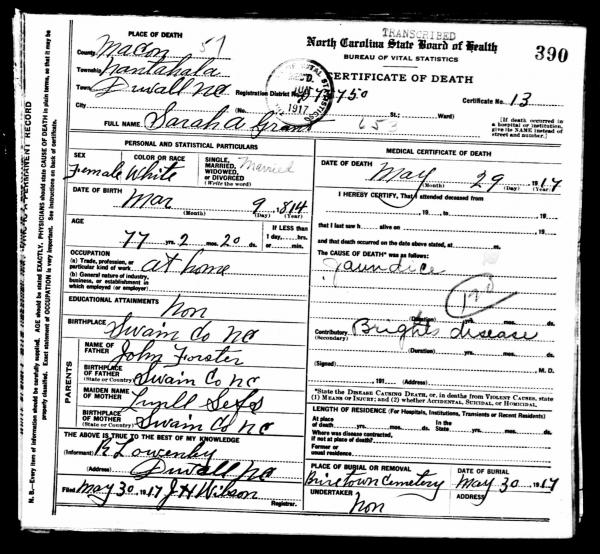 TRANSCRIBED
North Carolina State Board of Health
BUREAU OF VITAL STATISTICS
390
CERTIFICATE OF DEATH
PLACE OF DEATH
County Macon 57
Township Nantahala
Town Duvall NC
Registration District No. 5750
Certificate No. 13
1917
City (No. St.; Ward)
[If death occurred in a hospital or institution, give its NAME instead of street and number.]
FULL NAME Sarah A Grant 653
PERSONAL AND STATISTICAL PARTICULARS
SEX Female
COLOR OR RACE White
SINGLE, MARRIED, WIDOWED, OR DIVORCED (Write the word) Married
DATE OF BIRTH Mar (Month) 9 (Day) (Year)
AGE 77 yrs. 2 mos. 20 ds.
IF LESS than 1 day,....hrs. or....min.
OCCUPATION
(a) Trade, profession, or particular kind of work at home
(b) General nature of industry, business, or establishment in which employed (or employer)
EDUCATIONAL ATTAINMENTS non
BIRTHPLACE Swain Co NC
PARENTS
NAME OF FATHER John Forster
BIRTHPLACE OF FATHER (State or Country) Swain Co NC
MAIDEN NAME OF MOTHER
BIRTHPLACE OF MOTHER (State or Country) Swain Co NC
THE ABOVE IS TRUE TO THE BEST OF MY KNOWLEDGE
(Informant) R Lowenby
(Address) Duvall NC
Filed May 30 1917 J H Wilson
Registrar.
MEDICAL CERTIFICATE OF DEATH
DATE OF DEATH
May (Month) 29 (Day) 1917 (Year)
I HEREBY CERTIFY, That I attended deceased from
, 19 , to , 19
that I last saw h alive on , 19
and that death occurred on the date above stated, at m.
The CAUSE OF DEATH* was as follows:
Jaundice
(Duration) yrs. mos. ds.
Contributory (Secondary) Brights disease
(Duration) yrs. mos. ds.
(Signed) , M. D.
, 191 (Address)
*State the DISEASE CAUSING DEATH, or, in deaths from VIOLENT CAUSES, state (1) MEANS OF INJURY; and (2) whether ACCIDENTAL, SUICIDAL, or HOMICIDAL.
LENGTH OF RESIDENCE (For Hospitals, Institutions, Transients or Recent Residents)
At place of death yrs. mos. ds. In the State yrs. mos. ds.
Where was disease contracted, if not at place of death?
Former or usual residence
PLACE OF BURIAL OR REMOVAL
DATE OF BURIAL
Cemetery May 30 1917
UNDERTAKER non
ADDRESS
N. B.—Every item of information should be carefully supplied. AGE should be stated EXACTLY. PHYSICIANS should state CAUSE OF DEATH in plain terms, so that it may be properly classified. Exact statement of OCCUPATION is very important. See instructions on back of certificate.
PERMANENT RECORD